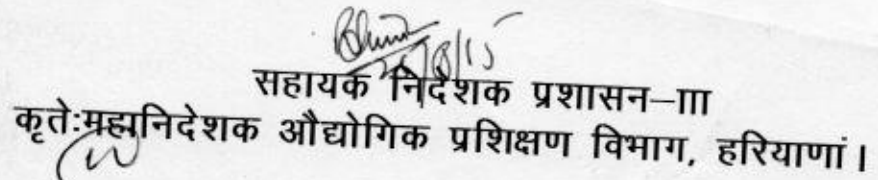 सहायक निदेशक प्रशासन–III
कृतेःमहानिदेशक औद्योगिक प्रशिक्षण विभाग, हरियाणां।